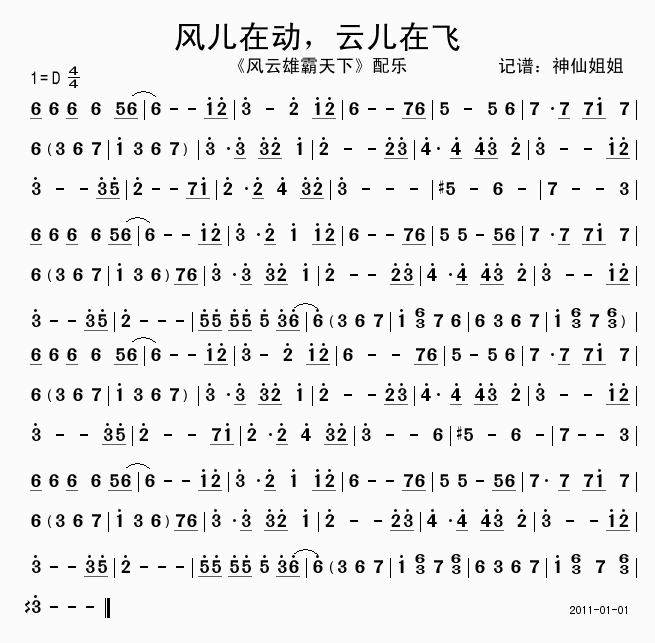 风儿在动，云儿在飞
《风云雄霸天下》配乐 记谱：神仙姐姐
1=D 4/4
6 6 6 6 56|6 - - i̇2̇|3̇ - 2̇ i̇2̇|6 - - 76|5 - 5 6|7 ·7 7i̇ 7|
6 (3 6 7|i̇ 3 6 7)|3̇ ·3̇ 3̇2̇ i̇|2̇ - - 2̇3̇|4̇· 4̇ 4̇3̇ 2̇|3̇ - - i̇2̇|
3̇ - - 3̇5̇|2̇ - - 7i̇|2̇ ·2̇ 4̇ 3̇2̇|3̇ - - -|#5 - 6 -|7 - - 3|
6 6 6 6 56|6 - - i̇2̇|3̇ ·2̇ i̇ i̇2̇|6 - - 76|5 5 - 56|7 ·7 7i̇ 7|
6 (3 6 7|i̇ 3 6)76|3̇ ·3̇ 3̇2̇ i̇|2̇ - - 2̇3̇|4̇ ·4̇ 4̇3̇ 2̇|3̇ - - i̇2̇|
3̇ - - 3̇5̇|2̇ - - -|5̇5̇ 5̇5̇ 5̇ 3̇6̇|6̇ (3 6 7|i̇ 6̇/3 7 6|6 3 6 7|i̇ 6̇/3 7 6̇/3)|
6 6 6 6 56|6 - - i̇2̇|3̇ - 2̇ i̇2̇|6 - - 76|5 - 5 6|7 ·7 7i̇ 7|
6 (3 6 7|i̇ 3 6 7)|3̇ ·3̇ 3̇2̇ i̇|2̇ - - 2̇3̇|4̇· 4̇ 4̇3̇ 2̇|3̇ - - i̇2̇|
3̇ - - 3̇5̇|2̇ - - 7i̇|2̇ ·2̇ 4̇ 3̇2̇|3̇ - - 6|#5 - 6 -|7 - - 3|
6 6 6 6 56|6 - - i̇2̇|3̇ ·2̇ i̇ i̇2̇|6 - - 76|5 5 - 56|7· 7 7i̇ 7|
6 (3 6 7|i̇ 3 6)76|3̇ ·3̇ 3̇2̇ i̇|2̇ - - 2̇3̇|4̇ ·4̇ 4̇3̇ 2̇|3̇ - - i̇2̇|
3̇ - - 3̇5̇|2̇ - - -|5̇5̇ 5̇5̇ 5̇ 3̇6̇|6̇ (3 6 7|i̇ 6̇/3 7 6̇/3|6 3 6 7|i̇ 6̇/3 7 6̇/3)|
#3̇ - - -‖ 2011-01-01